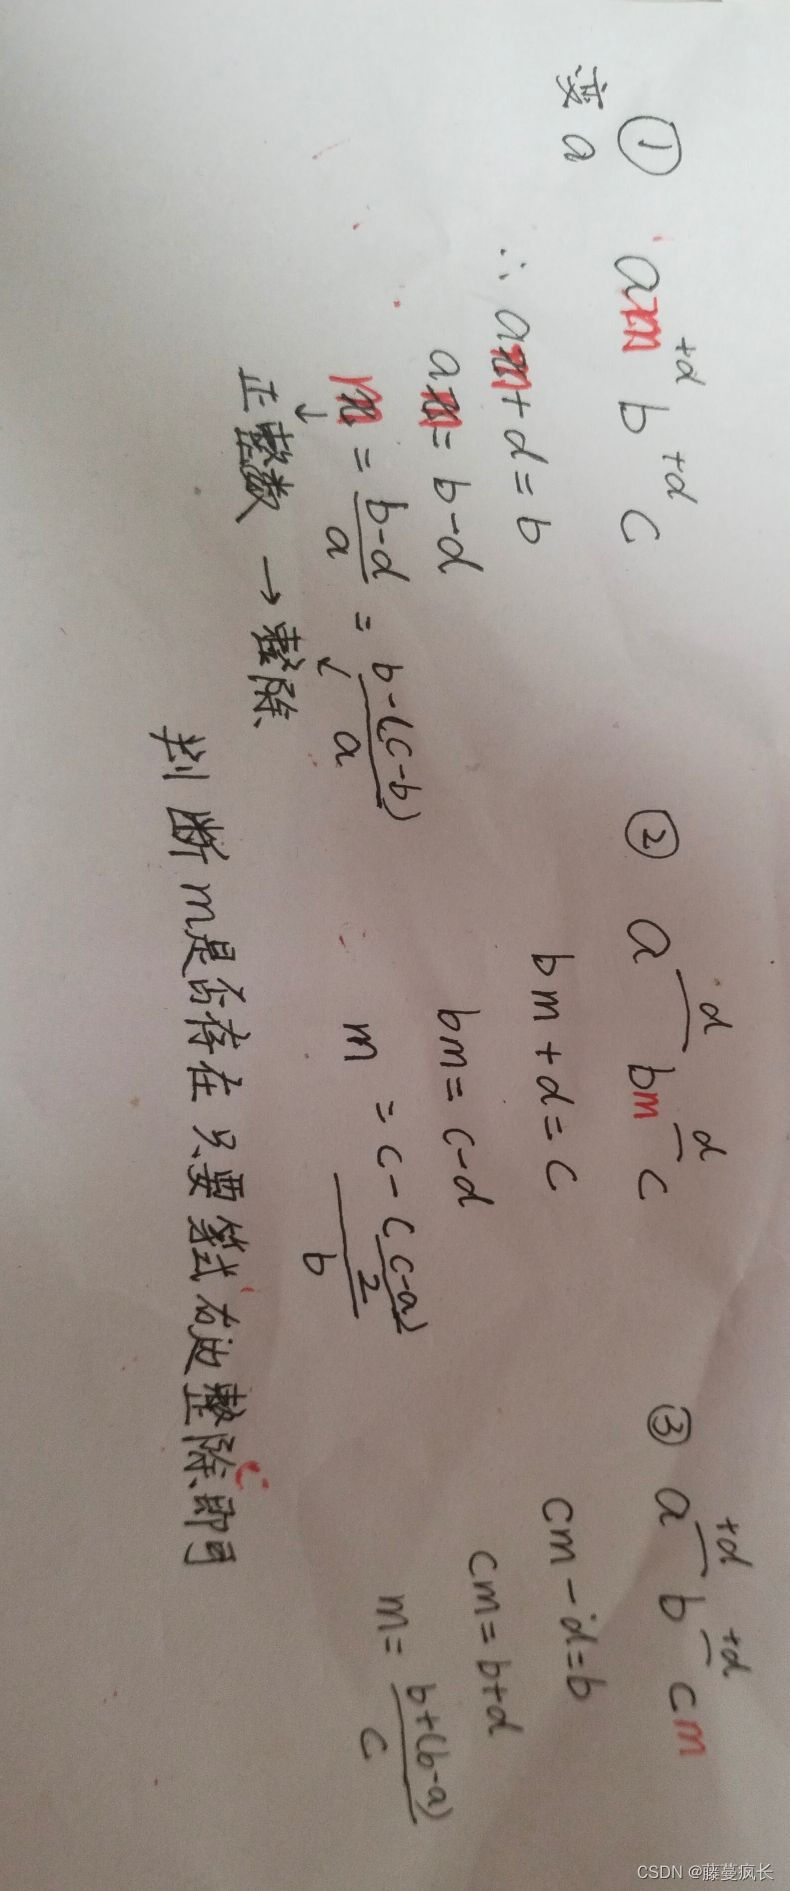 ①
变a
am +d b +d c
∴ am+d=b
am=b-d
m = \frac{b-d}{a} = \frac{b-(c-b)}{a}
↓ ↙
正整数 → 整除
② a d bm d c
bm+d=c
bm=c-d
m = \frac{c-\frac{(c-a)}{2}}{b}
③ a +d b +d cm
cm-d=b
cm=b+d
m= \frac{b+(b-a)}{c}
判断m是否存在 只要等式右边整除即可
CSDN @藤蔓疯长